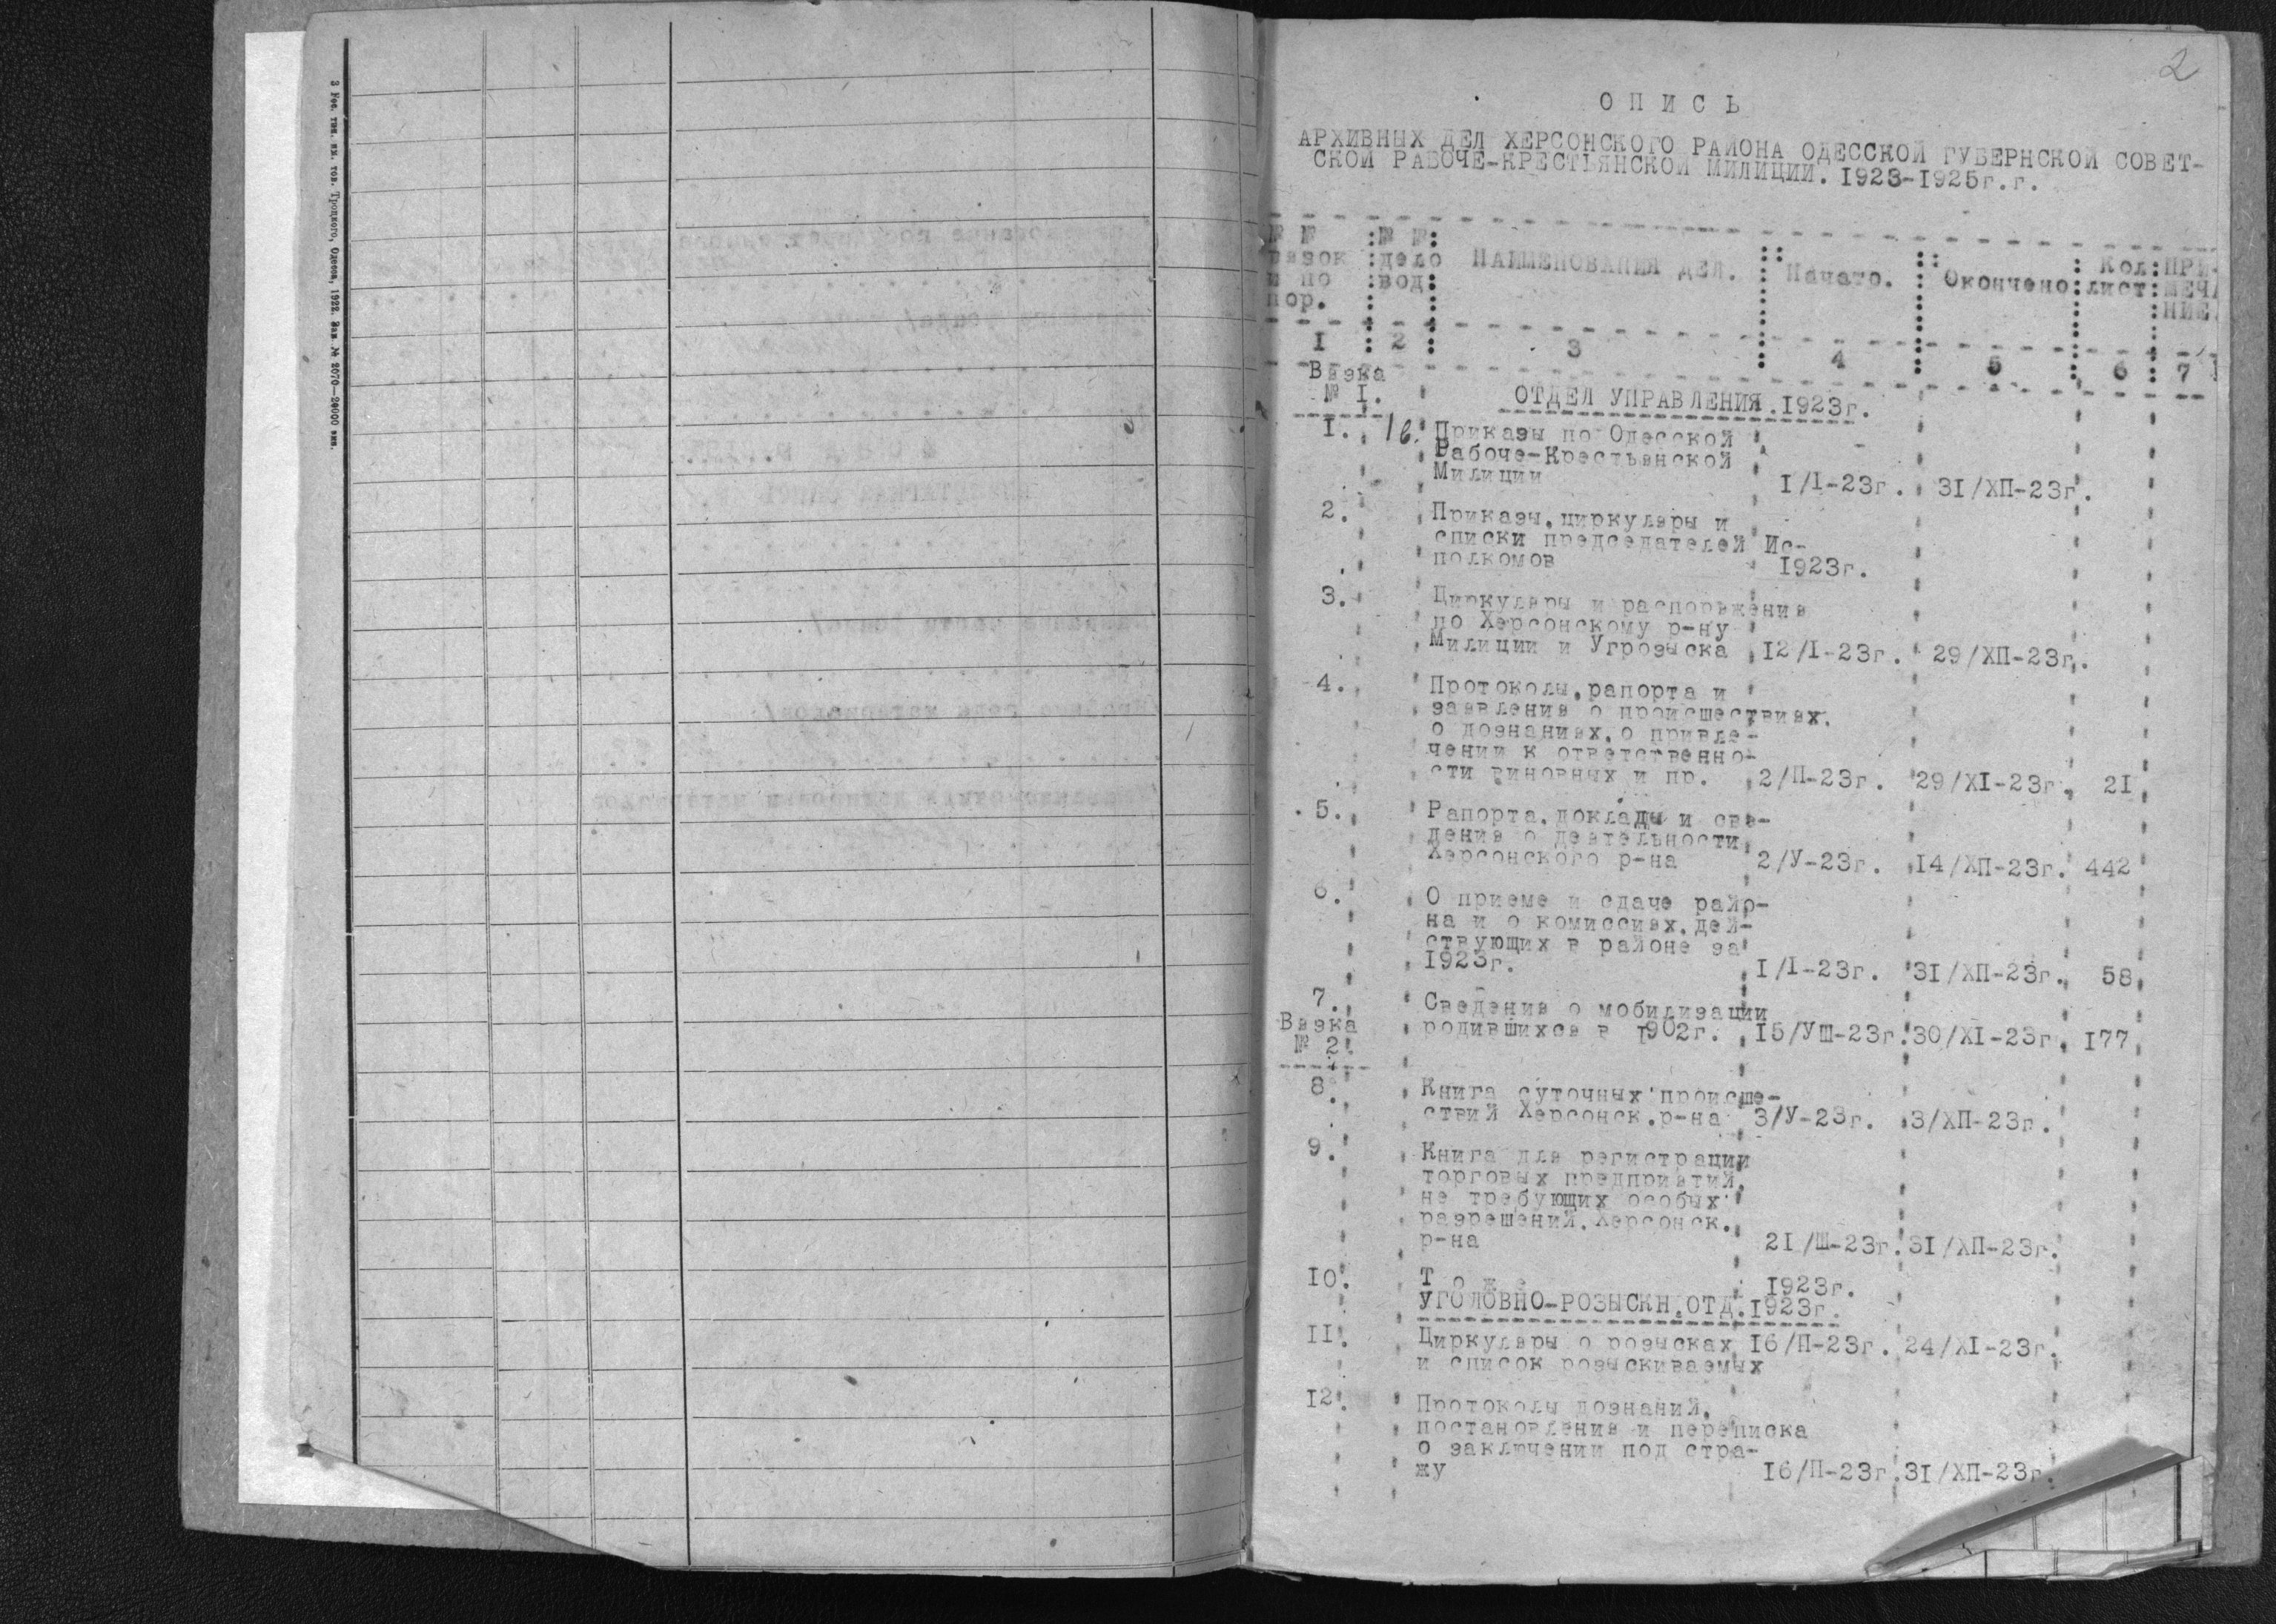 3 Гос. тип. им. тов. Троцкого, Одесса, 1922. Зак. № 2070—24000 экз.
2
О П И С Ь
АРХИВНЫХ ДЕЛ ХЕРСОНСКОГО РАЙОНА ОДЕССКОЙ ГУБЕРНСКОЙ СОВЕТ-
СКОЙ РАБОЧЕ-КРЕСТЬЯНСКОЙ МИЛИЦИИ. 1923-1925г.г.
№ № вязок и по пор. № № дело вод НАИМЕНОВАНИЯ ДЕЛ. Начато. Окончено Кол лист ПРИ- МЕЧА НИЕ.
1 2 3 4 5 6 7
Вязка
№ I. ОТДЕЛ УПРАВЛЕНИЯ.1923г.
I. 1в. Приказы по Одесской
Рабоче-Крестьянской
Милиции I/I-23г. 3I/ХП-23г.
2. Приказы,циркуляры и
списки председателей Ис-
полкомов 1923г.
3. Циркуляры и распоряжения
по Херсонскому р-ну
Милиции и Угрозыска I2/I-23г. 29/ХП-23г.
4. Протоколы,рапорта и
заявления о происшествиях,
о дознаниях,о привле-
чении к ответственно-
сти виновных и пр. 2/П-23г. 29/XI-23г. 2I
5. Рапорта,доклады и све-
дения о деятельности
Херсонского р-на 2/У-23г. I4/ХП-23г. 442
6. О приеме и сдаче райо-
на и о комиссиях,дей-
ствующих в районе за
I923г. I/I-23г. 3I/ХП-23г. 58
7. Сведения о мобилизации
Вязка родившихся в I902г. I5/УШ-23г. 30/XI-23г. I77
№ 2.
8. Книга суточных происше-
ствий Херсонск.р-на 3/У-23г. 3/ХП-23г.
9. Книга для регистрации
торговых предприятий,
не требующих особых
разрешений,Херсонск.
р-на 2I/Ш-23г. 3I/ХП-23г.
I0. Т о ж е I923г.
УГОЛОВНО-РОЗЫСКН.ОТД.I923г.
II. Циркуляры о розысках I6/П-23г. 24/XI-23г.
и список розыскиваемых
I2. Протоколы дознаний,
постановления и переписка
о заключении под стра-
жу I6/П-23г. 3I/ХП-23г.